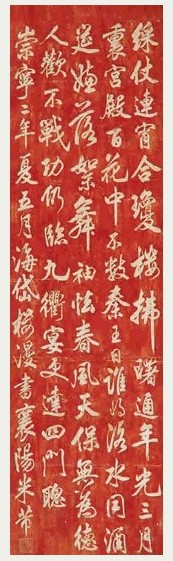 綵仗連宵合瓊樓拂曙通年光三月
裏宮殿百花中不數秦王日誰將洛水同酒
筵嫌落絮舞袖怯春風天保無為德
人歡不戰功仍臨九衢宴更達四門聰
崇寧二年夏五月海岱樓漫書襄陽米芾